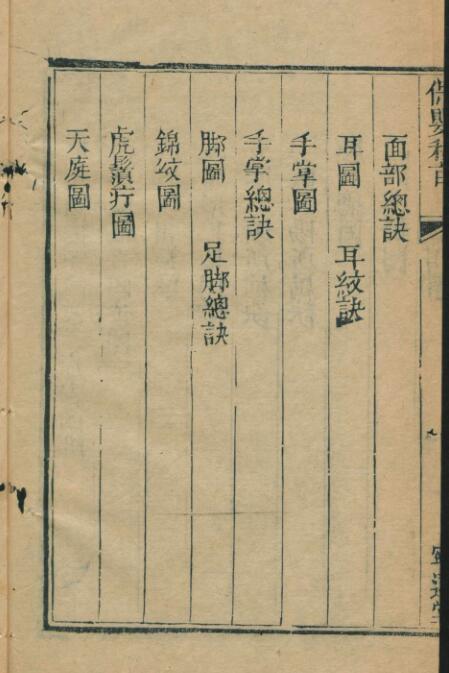 面部總訣
耳圖　耳紋訣
手掌圖
手掌總訣
脚圖　足脚總訣
錦紋圖
虎鬚疔圖
天庭圖